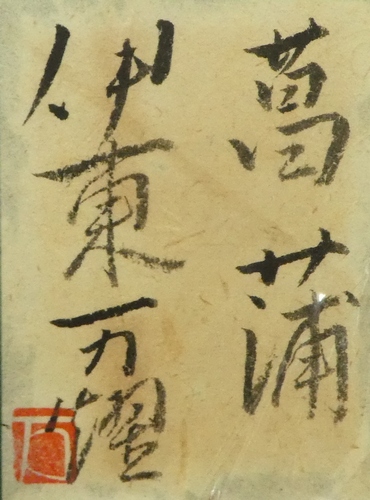 菖蒲
伊東万燿
万